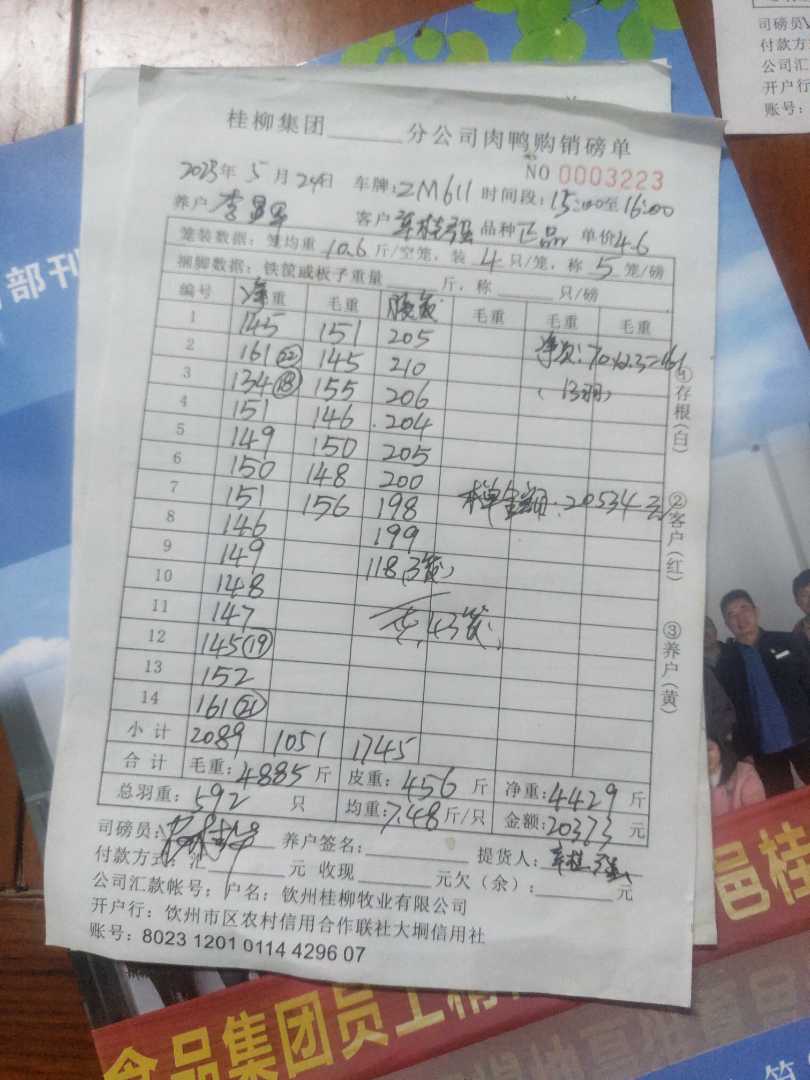 司磅员
付款方
公司汇
开户行
账号:
部刊
桂柳集团______分公司肉鸭购销磅单
NO 0003223
2023年5月24日 车牌:ZM611 时间段:15:00至16:00
养户 客户 强 品种 正品 单价4.6
笼装数据:笼均重10.6斤/空笼,装4只/笼,称5笼/磅
捆脚数据:铁筐或板子重量______斤,称______只/磅
编号 重 毛重 毛重 毛重 毛重
1 145 151 205
2 161(22) 145 210
3 134(18) 155 206
4 151 146 204
5 149 150 205
6 150 148 200
7 151 156 198 20534元
8 146 199
9 149 118(3笼)
10 148
11 147 43笼
12 145(19)
13 152
14 161(21)
小计 2089 1051 1745
合计 毛重:4885斤 皮重:456斤 净重:4429斤
总羽重:592只 均重:7.48斤/只 金额:20373元
司磅员: 养户签名: 提货人: 强
付款方式:汇______元 收现______元欠(余):______元
公司汇款帐号:户名:钦州桂柳牧业有限公司
开户行:钦州市区农村信用合作联社大垌信用社
账号:8023 1201 0114 4296 07
①存根(白)
②客户(红)
③养户(黄)
邑桂
食品集团员工
第